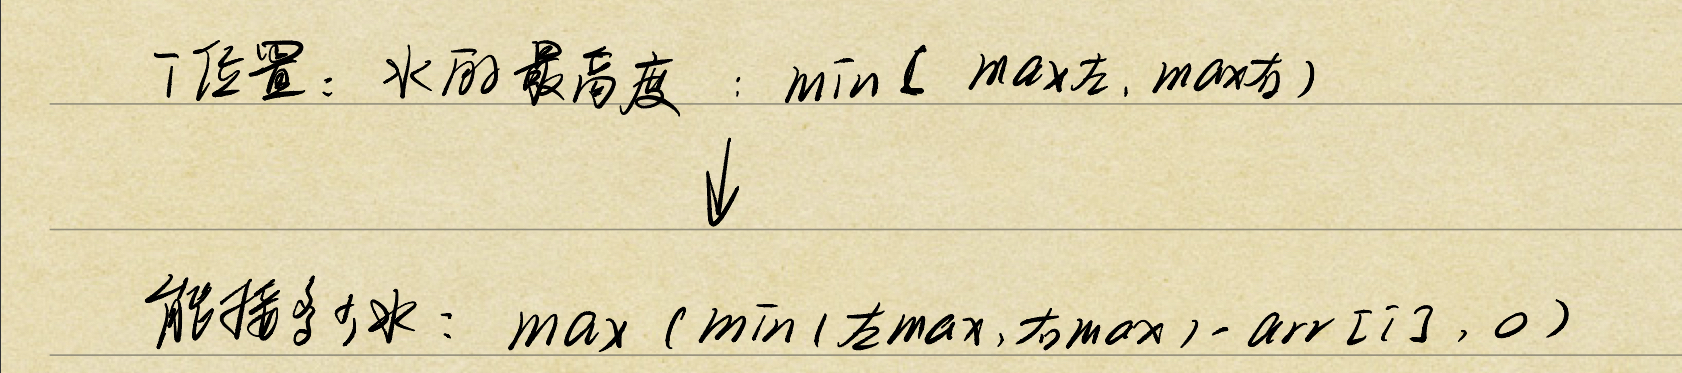 i位置：水的最高度：min( max左, max右)
能接多少水：max(min(左max,右max)-arr[i],0)